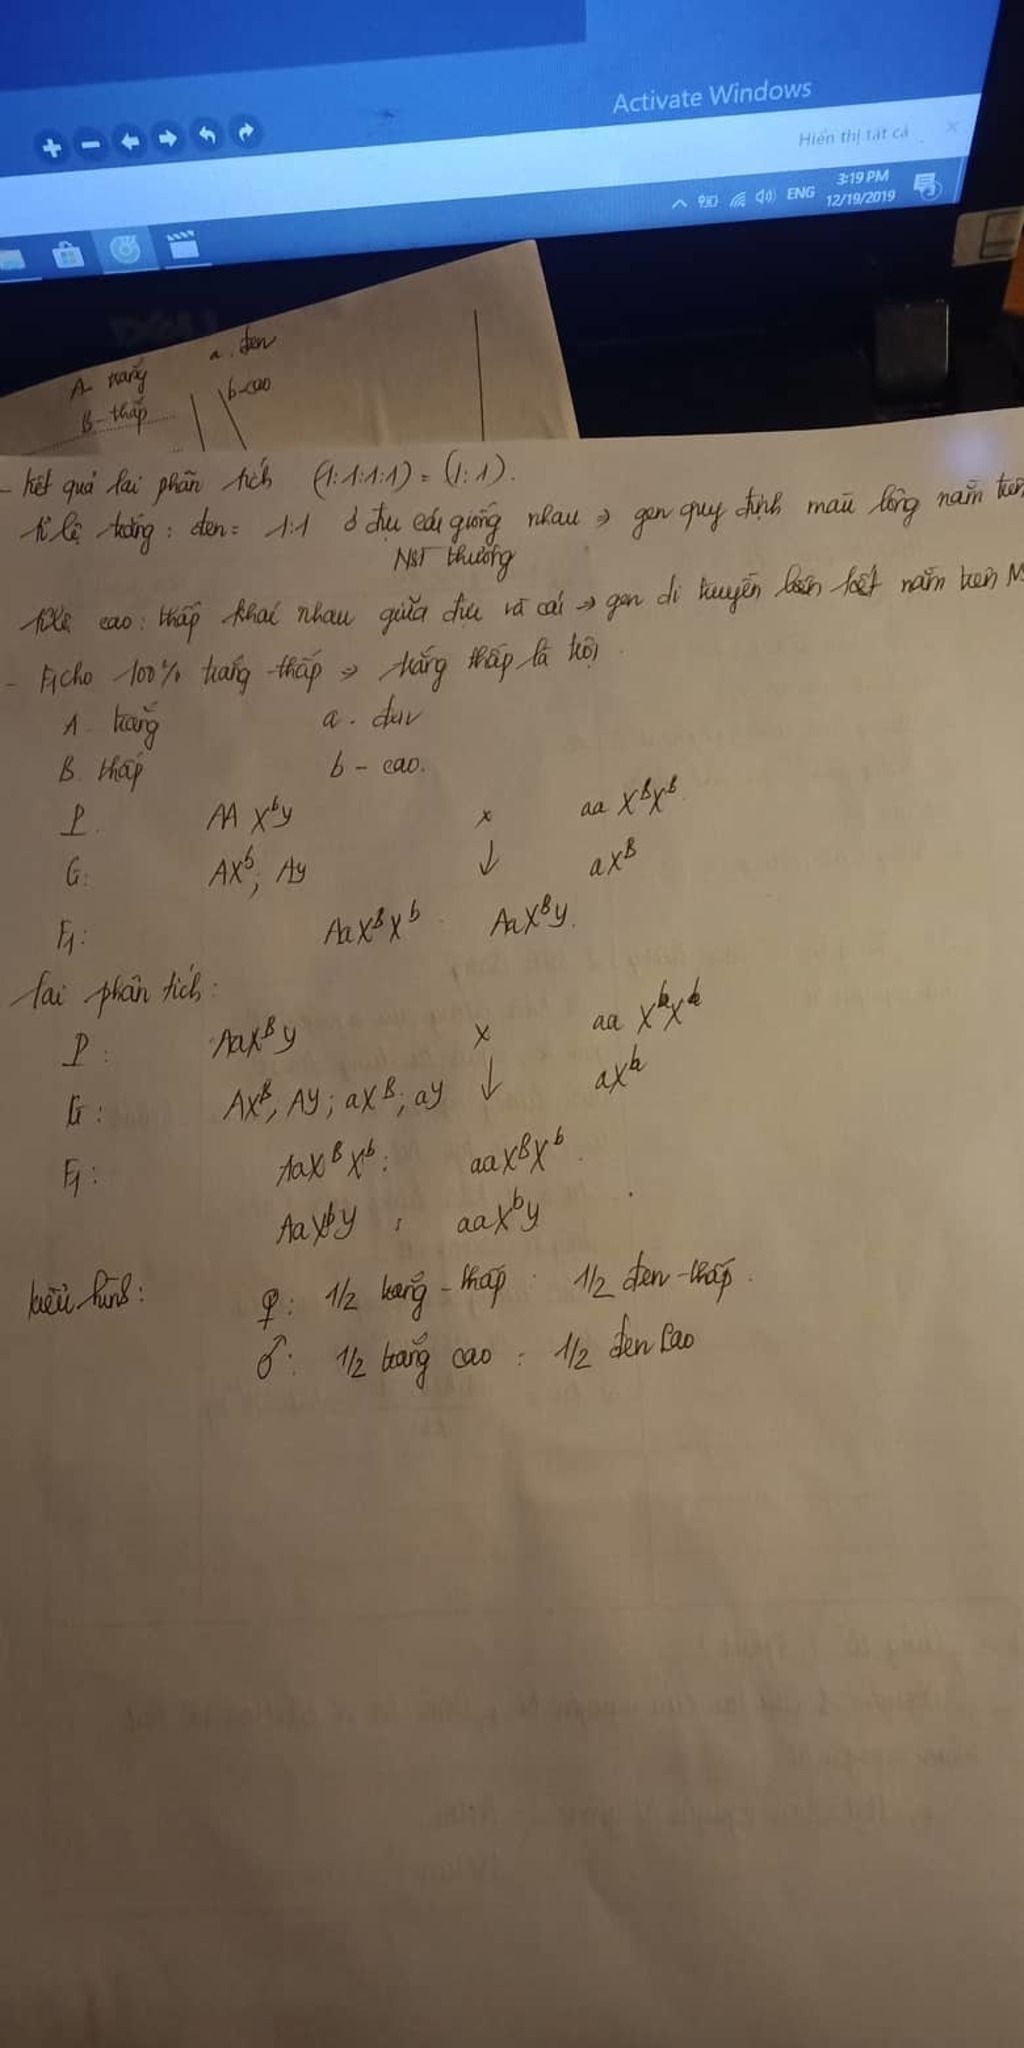 Activate Windows
Hiển thị tất cả
3:19 PM
ENG
12/19/2019
3
DELL
A- trắng a. đen
B- thấp b-cao
- kết quả lai phân tích (1:1:1:1) = (1:1).
tỉ lệ trắng: đen = 1:1 ở đực cái giống nhau ⇒ gen quy định màu lông nằm trên
NST thường
tỉ lệ cao: thấp khác nhau giữa đực và cái → gen di truyền liên kết nằm trên N
- F1 cho 100% trắng-thấp ⇒ trắng thấp là trội.
A. trắng a. đen
B. thấp b - cao.
P. AA XᵇY x aa XᴮXᴮ
G: AXᵇ; AY ↓ aXᴮ
F1: AaXᴮXᵇ AaXᴮY.
lai phân tích:
P: AaXᴮY x aa XᵇXᵇ
G: AXᴮ, AY; aXᴮ; aY ↓ aXᵇ
F1: AaXᴮXᵇ: aaXᴮXᵇ.
AaXᵇY : aaXᵇY
kiểu hình: ♀: 1/2 trắng-thấp : 1/2 đen-thấp.
♂: 1/2 trắng cao : 1/2 đen cao